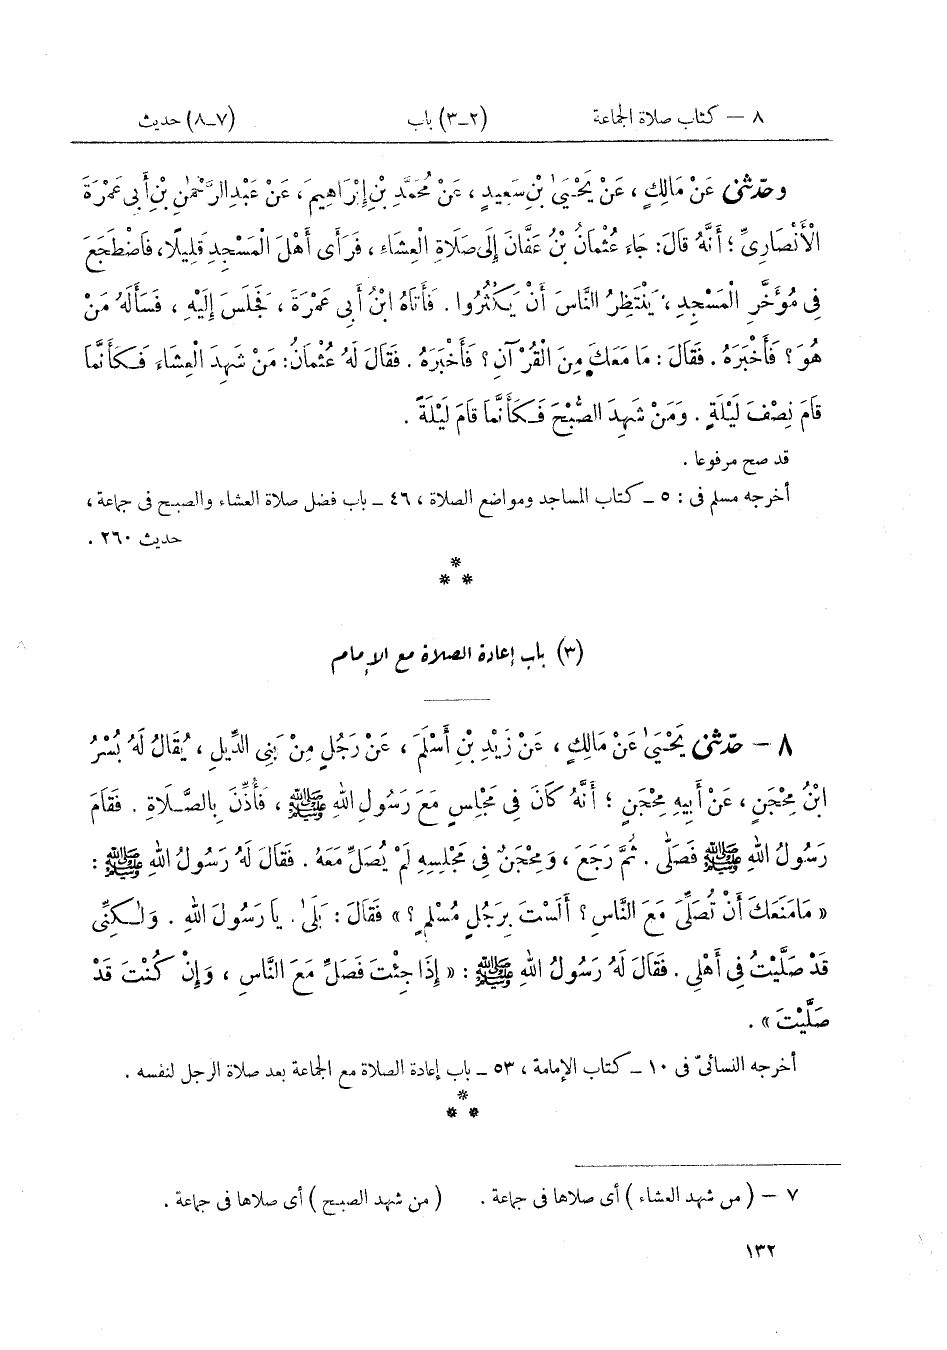 ٨ – كتاب صلاة الجماعة (٢-٣) باب (٧-٨) حديث
وحدّثنى عَنْ مَالِكٍ ، عَنْ يَحْيَىٰ بْنِ سَعِيدٍ ، عَنْ مُحَمَّدِ بْنِ إِبْرَاهِيمَ ، عَنْ عَبْدِ الرَّحْمٰنِ بْنِ أَبِى عَمْرَةَ
الْأَنْصَارِىِّ ؛ أَنَّهُ قَالَ : جَاءَ عُثْمَانُ بْنُ عَفَّانَ إِلَى صَلَاةِ الْعِشَاءِ ، فَرَأَى أَهْلَ الْمَسْجِدِ قَلِيلًا ، فَاضْطَجَعَ
فِى مُؤَخَّرِ الْمَسْجِدِ ، يَنْتَظِرُ النَّاسَ أَنْ يَكْثُرُوا . فَأَتَاهُ ابْنُ أَبِى عَمْرَةَ ، فَجَلَسَ إِلَيْهِ ، فَسَأَلَهُ مَنْ
هُوَ ؟ فَأَخْبَرَهُ . فَقَالَ : مَا مَعَكَ مِنَ الْقُرْآنِ ؟ فَأَخْبَرَهُ . فَقَالَ لَهُ عُثْمَانُ : مَنْ شَهِدَ الْعِشَاءَ فَكَأَنَّمَا
قَامَ نِصْفَ لَيْلَةٍ . وَمَنْ شَهِدَ الصُّبْحَ فَكَأَنَّمَا قَامَ لَيْلَةً .
قد صح مرفوعا .
أخرجه مسلم فى : ٥ ــ كتاب المساجد ومواضع الصلاة ، ٤٦ ــ باب فضل صلاة العشاء والصبح فى جماعة ،
حديث ٢٦٠ .
*
* *
(٣) باب إعادة الصلاة مع الإمام
٨ – حدّثنى يَحْيَىٰ عَنْ مَالِكٍ ، عَنْ زَيْدِ بْنِ أَسْلَمَ ، عَنْ رَجُلٍ مِنْ بَنِى الدِّيلِ ، يُقَالُ لَهُ بُسْرُ
ابْنُ مِحْجَنٍ ، عَنْ أَبِيهِ مِحْجَنٍ ؛ أَنَّهُ كَانَ فِى مَجْلِسٍ مَعَ رَسُولِ اللهِ ﷺ ، فَأُذِّنَ بِالصَّلَاةِ . فَقَامَ
رَسُولُ اللهِ ﷺ فَصَلَّى . ثُمَّ رَجَعَ ، وَمِحْجَنٌ فِى مَجْلِسِهِ لَمْ يُصَلِّ مَعَهُ . فَقَالَ لَهُ رَسُولُ اللهِ ﷺ :
« مَا مَنَعَكَ أَنْ تُصَلِّىَ مَعَ النَّاسِ ؟ أَلَسْتَ بِرَجُلٍ مُسْلِمٍ ؟ » فَقَالَ : بَلَىٰ . يَا رَسُولَ اللهِ . وَلَـٰكِنِّى
قَدْ صَلَّيْتُ فِى أَهْلِى . فَقَالَ لَهُ رَسُولُ اللهِ ﷺ : « إِذَا جِئْتَ فَصَلِّ مَعَ النَّاسِ ، وَإِنْ كُنْتَ قَدْ
صَلَّيْتَ » .
أخرجه النسائىّ فى ١٠ ــ كتاب الإمامة ، ٥٣ ــ باب إعادة الصلاة مع الجماعة بعد صلاة الرجل لنفسه .
*
* *
٧ – ( من شهد العشاء ) أى صلاها فى جماعة . ( من شهد الصبح ) أى صلاها فى جماعة .
١٣٢